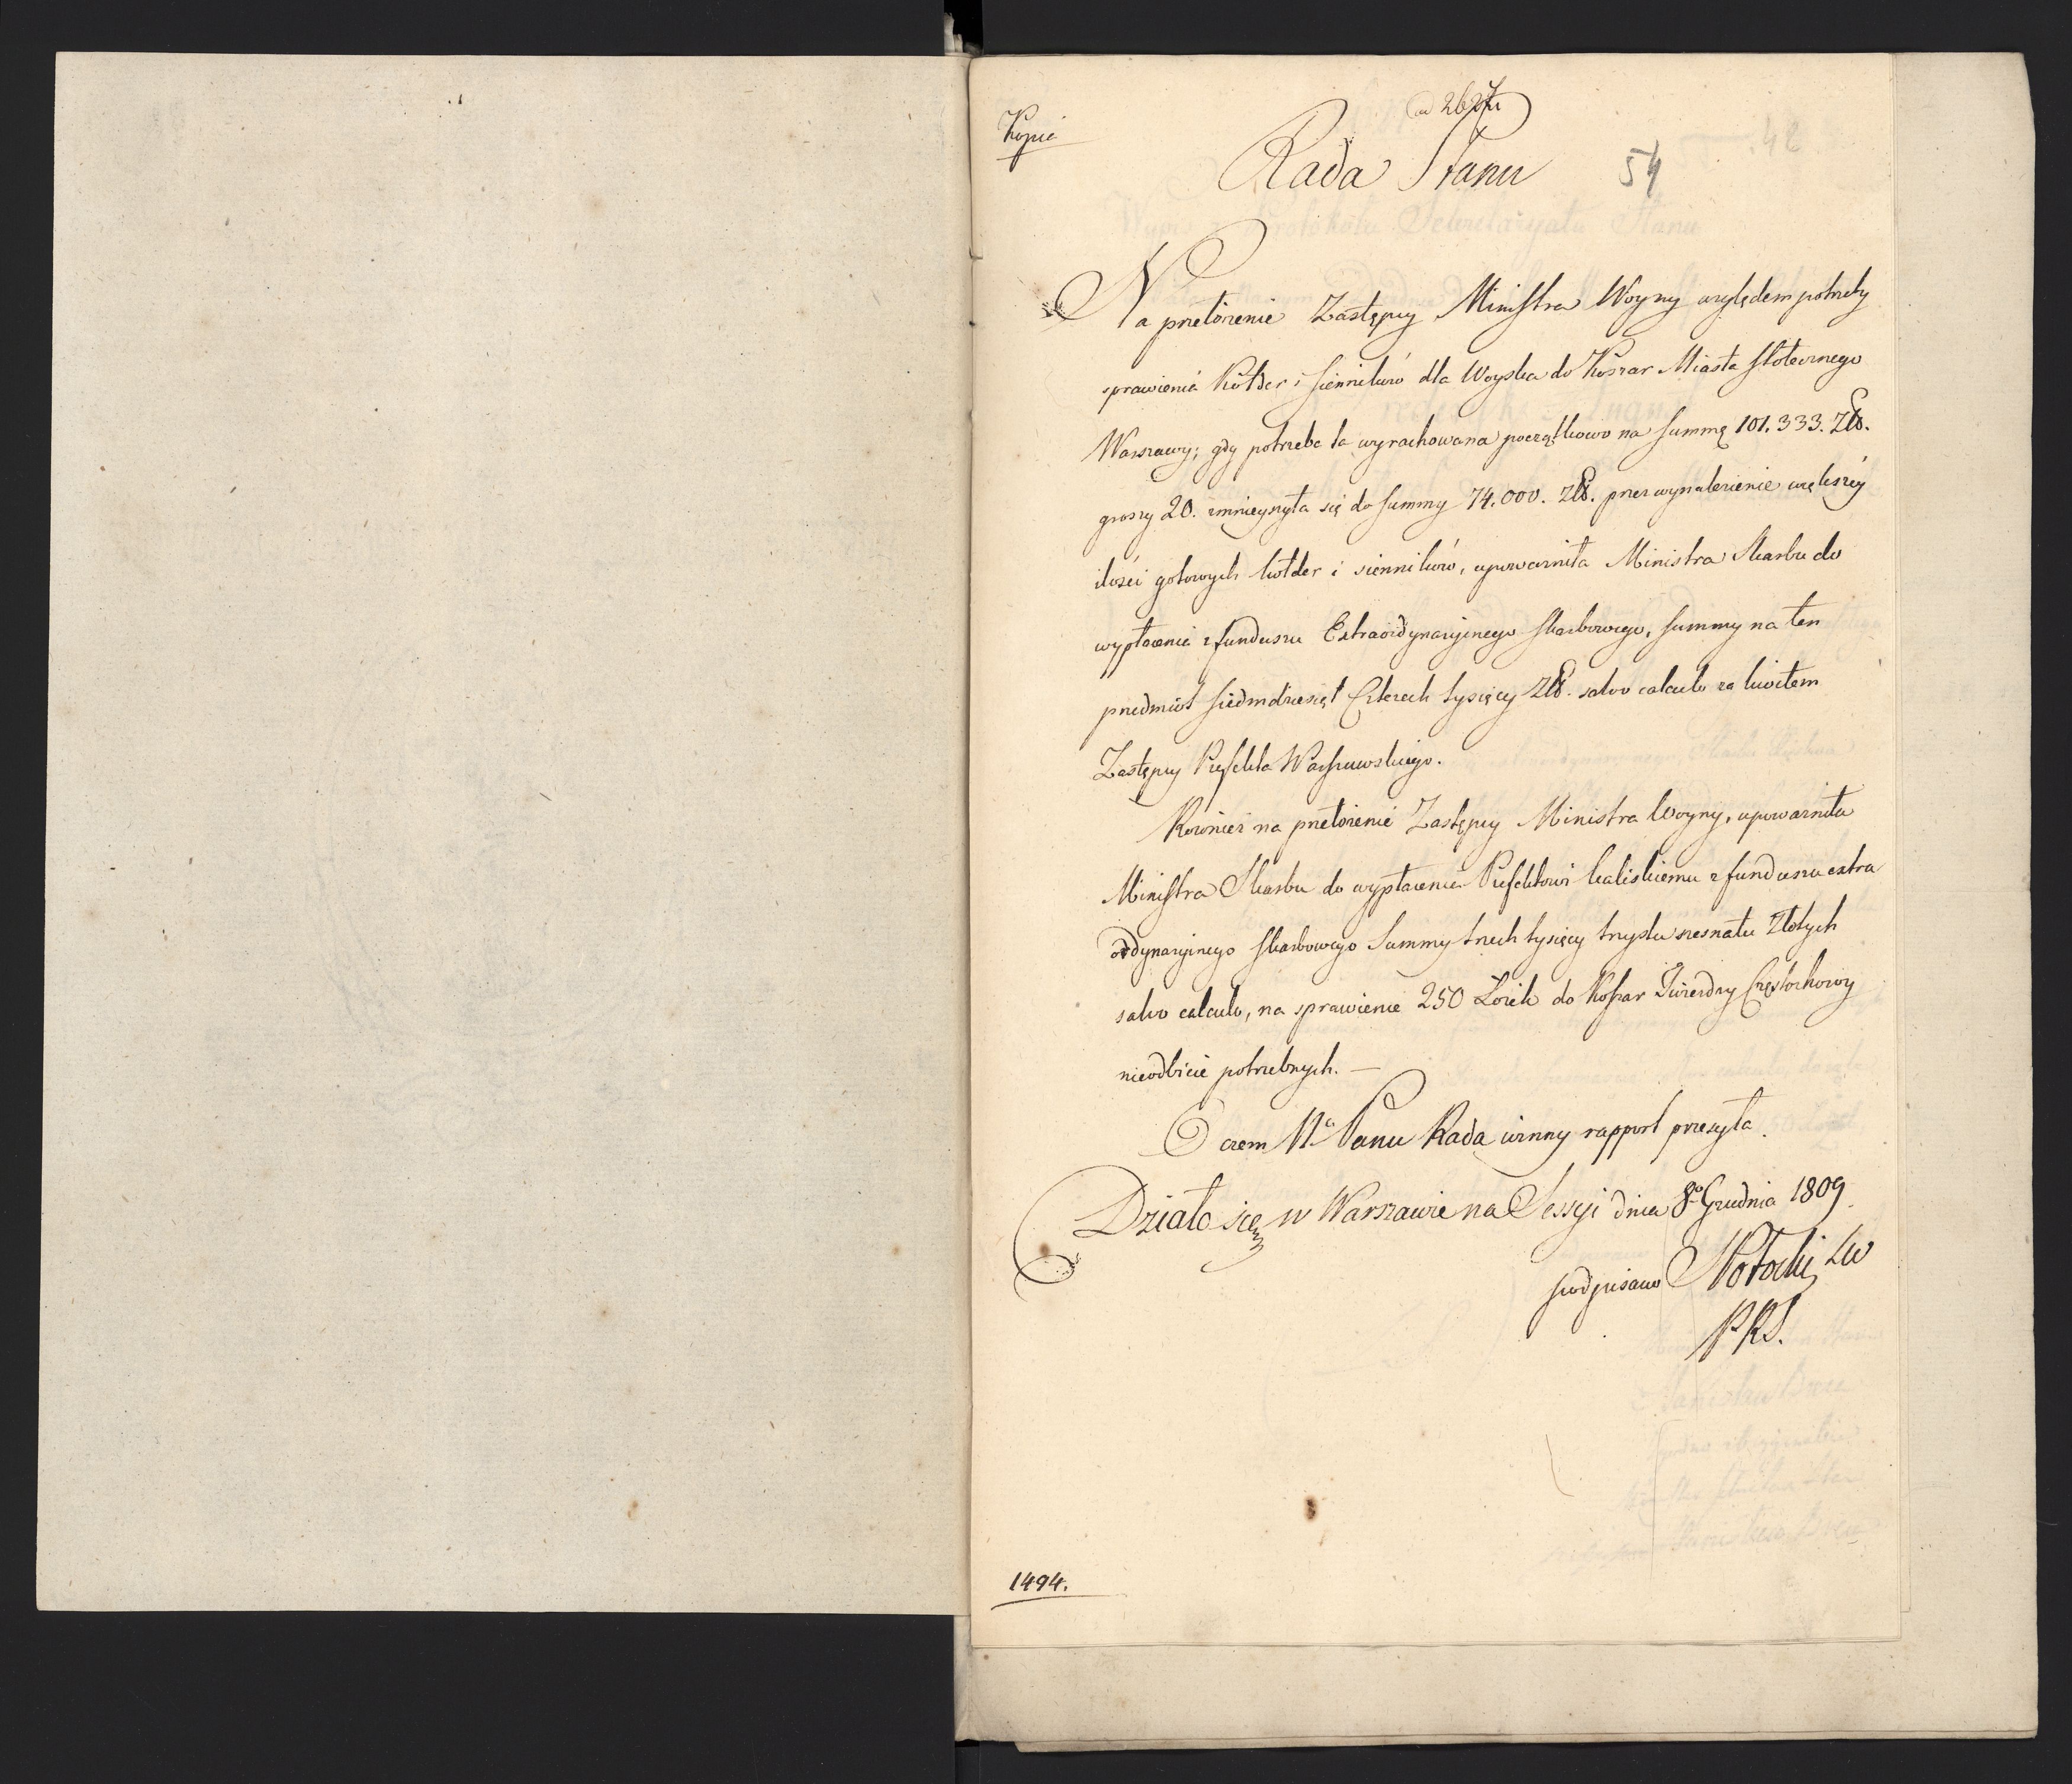 Kopia
ad 2627
Rada Stanu
54
Na przełożenie Zastępcy Ministra Woyny względem potrzeby
sprawienia Kołder i sienników dla Woyska do Koszar Miasta stołecznego
Warszawy; gdy potrzeba ta wyrachowana początkowo na summę 101.333. Złł.
groszy 20. zmnieyszyła się do summy 74.000. złł. przez wynalezienie większey
ilości gotowych kołder i sienników, upoważniła Ministra Skarbu do
wypłacenia z funduszu Extraordynaryinego skarbowego, summy na ten
przedmiot siedmdziesiąt Czterech tysięcy Złł. salvo calculo za kwitem
Zastępcy Prefekta Warszawskiego.
Również na przełożenie Zastępcy Ministra Woyny, upoważniła
Ministra Skarbu do wypłacenia Prefektowi kaliskiemu z funduszu extra
ordynaryinego skarbowego Summy trzech tysięcy trzystu szesnastu Złotych
salvo calculo, na sprawienie 250 Łóżek do Koszar Twierdzy Częstochowy
nieodbicie potrzebnych. —
O czem N. Panu Rada winny rapport przesyła.
Działo się w Warszawie na Sessyi dnia 8o Grudnia 1809.
podpisano Potocki
P.R.S.
1494.